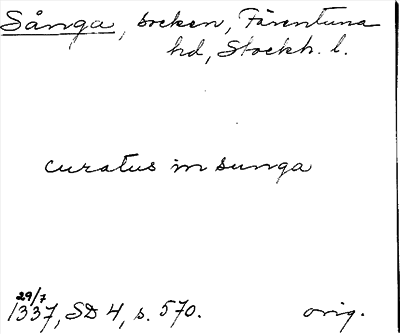 Sånga, socken, Färentuna
hd, Stockh. l.
curatus in sunga
29/7
1337, SD 4, s. 570. orig.